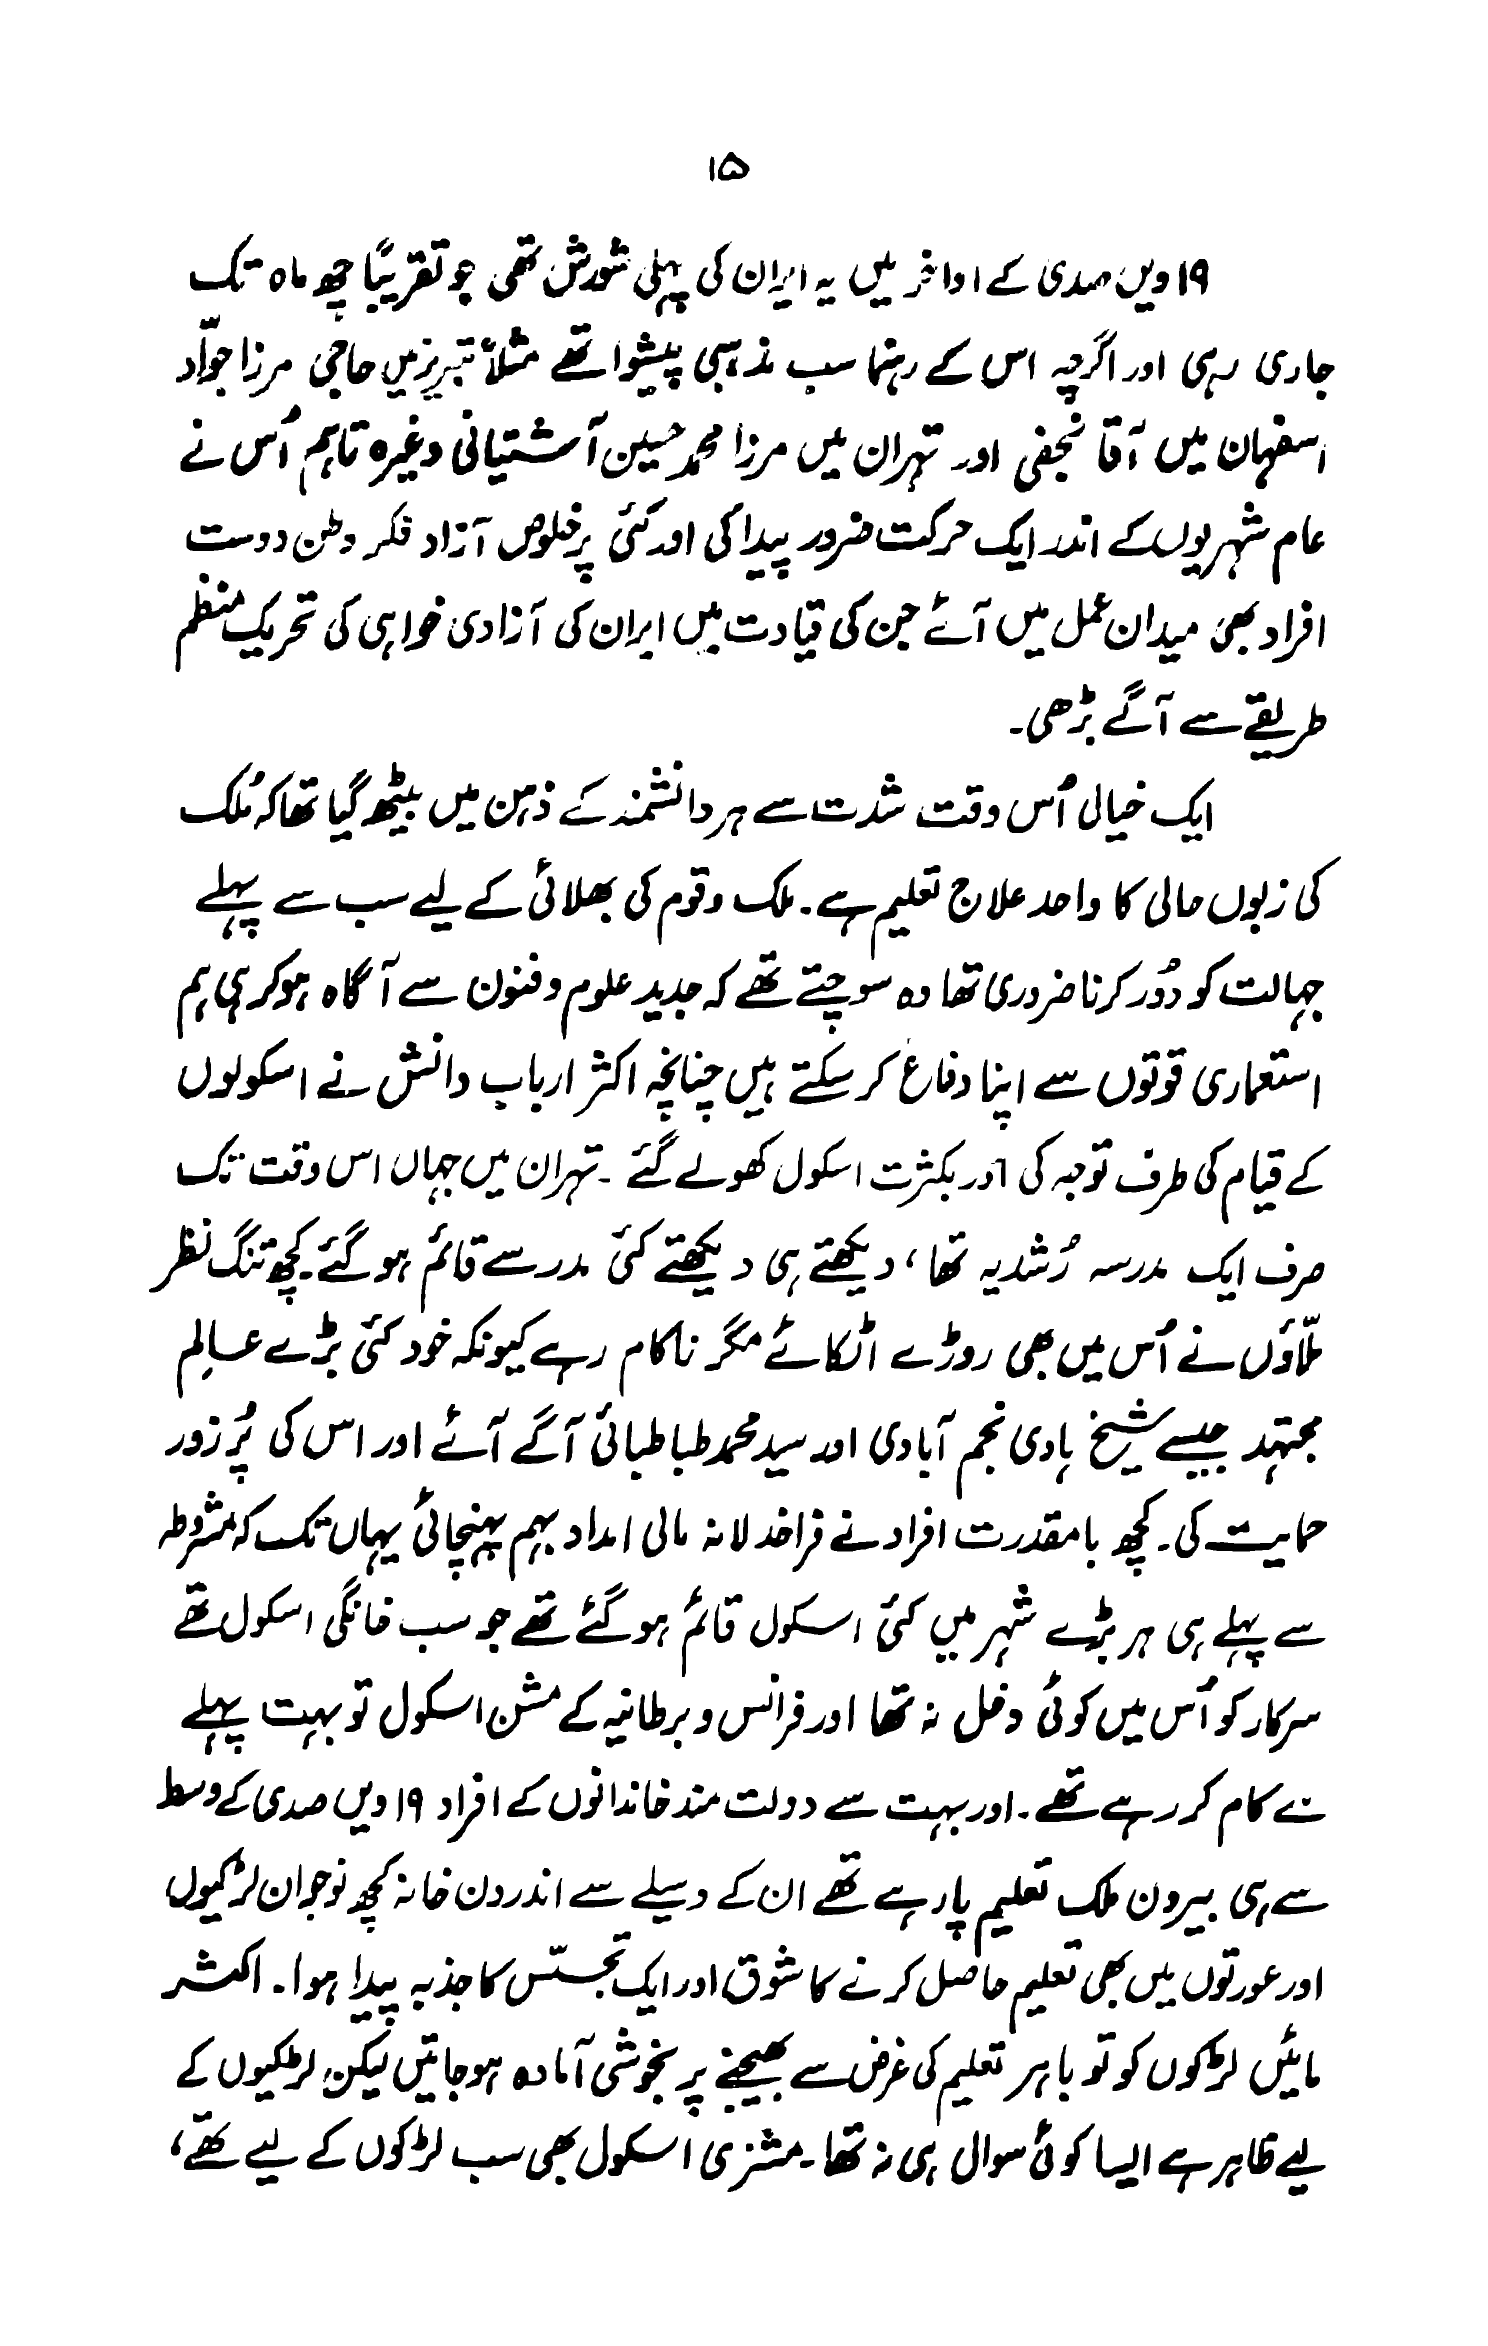 ۱۵
۱۹ ویں صدی کے اواخر میں یہ ایران کی پہلی شورش تھی جو تقریباً چھ ماہ تک
جاری رہی اور اگرچہ اس کے رہنما سب مذہبی پیشوا تھے مثلاً تبریز میں حاجی مرزا جوّاد
اسفہان میں آقا نجفی اور تہران میں مرزا محمد حسین آشتیانی وغیرہ تاہم اُس نے
عام شہریوں کے اندر ایک حرکت ضرور پیدا کی اور کئی پرخلوص آزاد فکر وطن دوست
افراد بھی میدان عمل میں آئے جن کی قیادت میں ایران کی آزادی خواہی کی تحریک منظم
طریقے سے آگے بڑھی۔
ایک خیالی اُس وقت شدت سے ہر دانشمند کے ذہن میں بیٹھ گیا تھا کہ مُلک
کی زبوں حالی کا واحد علاج تعلیم ہے۔ ملک و قوم کی بھلائی کے لیے سب سے پہلے
جہالت کو دُور کرنا ضروری تھا وہ سوچتے تھے کہ جدید علوم و فنون سے آگاہ ہوکر ہی ہم
استعماری قوتوں سے اپنا دفاع کر سکتے ہیں چنانچہ اکثر ارباب دانش نے اسکولوں
کے قیام کی طرف توجہ کی اور بکثرت اسکول کھولے گئے ۔ تہران میں جہاں اس وقت تک
صرف ایک مدرسہ رُشدیہ تھا، دیکھتے ہی دیکھتے کئی مدرسے قائم ہو گئے۔ کچھ تنگ نظر
ملّاؤں نے اُس میں بھی روڑے اٹکائے مگر ناکام رہے کیونکہ خود کئی بڑے عالِم
مجتہد جیسے شیخ ہادی نجم آبادی اور سید محمد طباطبائی آگے آئے اور اس کی پُر زور
حمایت کی۔ کچھ بامقدرت افراد نے فراخدلانہ مالی امداد بہم پہنچائی یہاں تک کہ مشروطہ
سے پہلے ہی ہر بڑے شہر میں کئی اسکول قائم ہو گئے تھے جو سب خانگی اسکول تھے
سرکار کو اُس میں کوئی دخل نہ تھا اور فرانس و برطانیہ کے مشن اسکول تو بہت پہلے
سے کام کر رہے تھے۔ اور بہت سے دولت مند خاندانوں کے افراد ۱۹ ویں صدی کے وسط
سے ہی بیرون ملک تعلیم پا رہے تھے ان کے وسیلے سے اندرون خانہ کچھ نوجوان لڑکیوں
اور عورتوں میں بھی تعلیم حاصل کرنے کا شوق اور ایک تجسّس کا جذبہ پیدا ہوا۔ اکثر
مائیں لڑکوں کو تو باہر تعلیم کی غرض سے بھیجنے پر بخوشی آمادہ ہو جاتیں لیکن لڑکیوں کے
لیے ظاہر ہے ایسا کوئی سوال ہی نہ تھا۔ مشنری اسکول بھی سب لڑکوں کے لیے تھے،